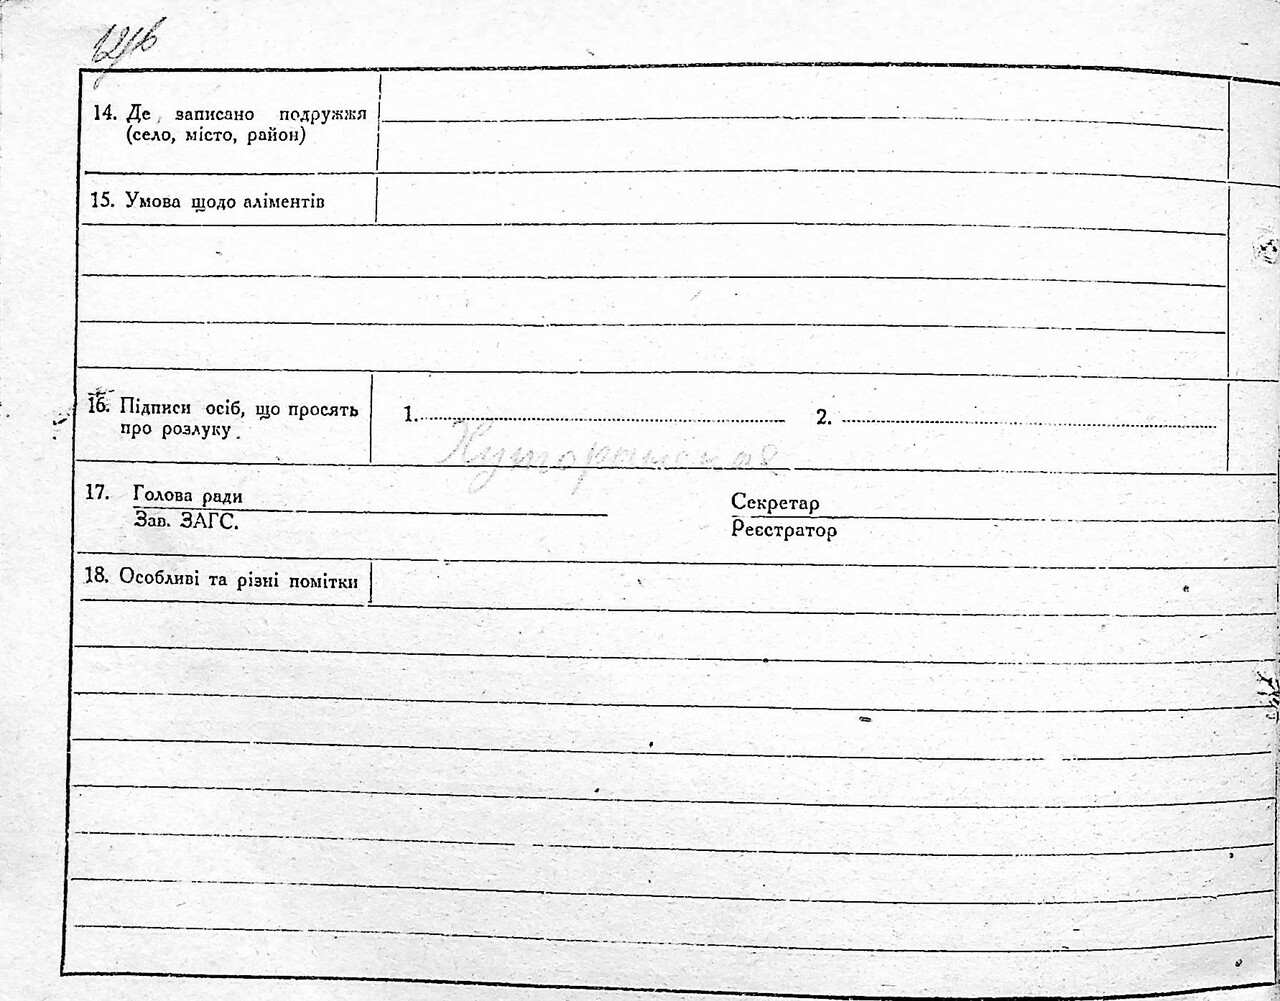 14. Де записано подружжя
(село, місто, район)
15. Умова щодо аліментів
16. Підписи осіб, що просять
про розлуку.
1. 2.
17. Голова ради
Зав. ЗАГС.
Секретар
Реєстратор
18. Особливі та різні помітки